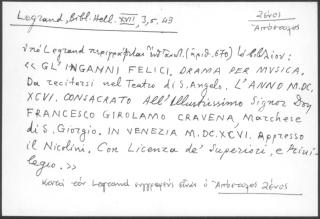 Legrand, Bibl. Hell. XVII, 3, σ. 43
Ζένος
Ἀπόστολος
ὑπὸ Legrand περιγράφεται (ἀριθ. 670) βιβλίον:
« GL'INGANNI FELICI. DRAMA PER MUSICA.
Da recitarsi nel Teatro di S. Angelo. L'ANNO M.DC.
XCVI. CONSACRATO All'Illustrissimo Signor Don
FRANCESCO GIROLAMO CRAVENA, Marchese
di S. Giorgio. IN VENEZIA M.DC.XCVI. Appresso
il Nicolini. Con Licenza de' Superiori, e Privi-
legio. »
Κατὰ τὸν Legrand συγγραφεὺς εἶναι ὁ Ἀπόστολος Ζένος